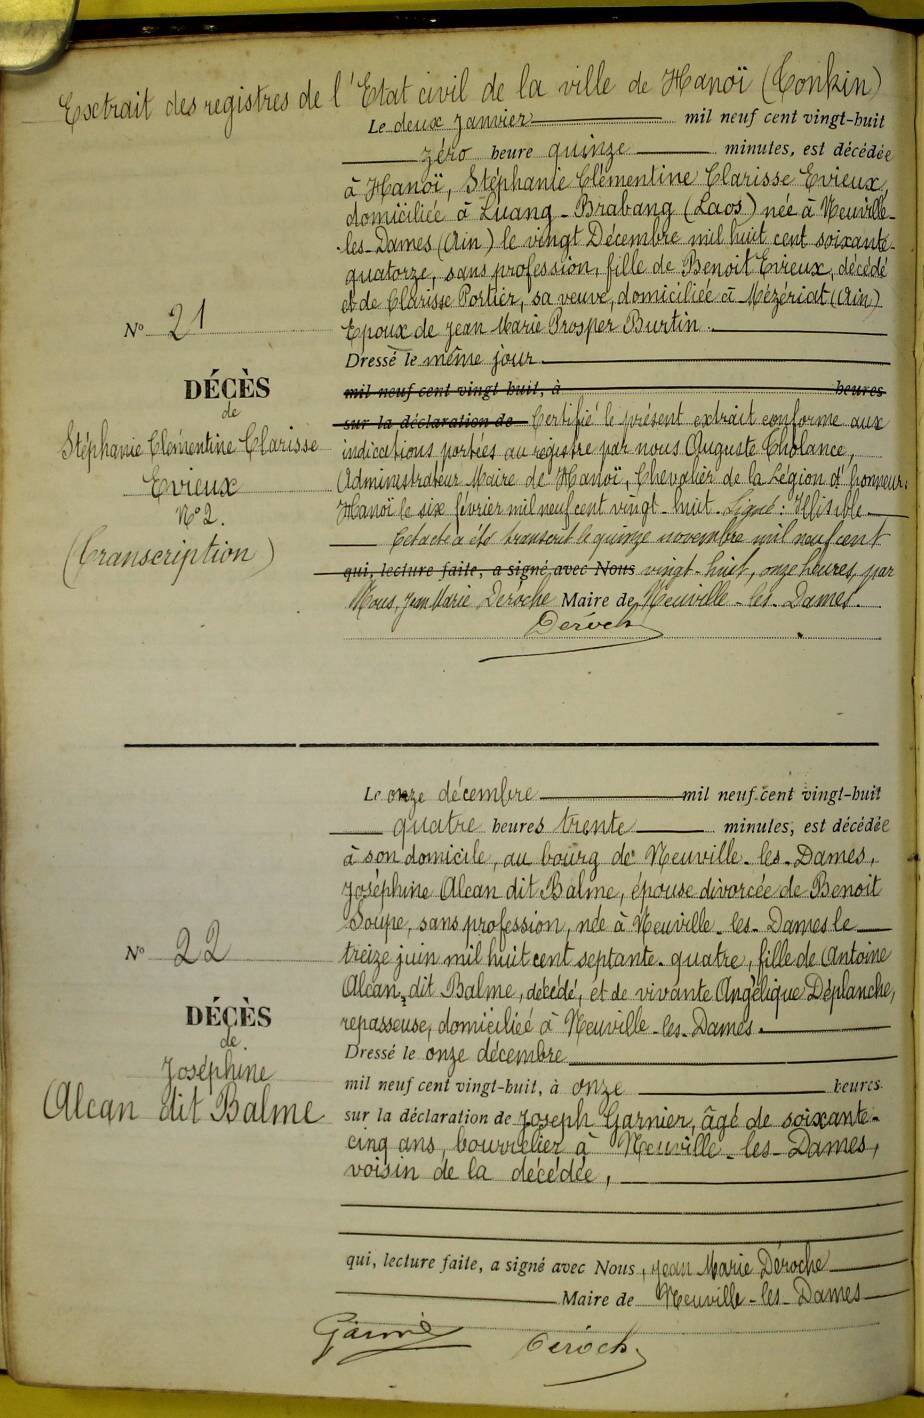 Extrait des registres de l'Etat civil de la ville de Hanoï (Tonkin)
Le deux Janvier mil neuf cent vingt-huit
zéro heure quinze minutes, est décédée
à Hanoï, Stéphanie Clémentine Clarisse Evieux,
domiciliée à Luang-Brabang (Laos) née à Neuville-
les-Dames (Ain) le vingt Décembre mil huit cent soixante-
quatorze, sans profession, fille de Benoit Evieux, décédé
et de Clarisse Portier, sa veuve, domiciliée à Mézériat (Ain)
Epoux de Jean Marie Prosper Burtin.
Dressé le même jour
mil neuf cent vingt huit, à heures
sur la déclaration de Certifié le présent extrait conforme aux
indications portées au registre par nous Auguste Tholance,
Administrateur Maire de Hanoï, Chevalier de la Légion d'honneur.
Hanoï le six février mil neuf cent vingt-huit. Signé: Illisible
Cet acte a été transcrit le quinze novembre mil neuf cent
qui, lecture faite, a signé avec Nous vingt-huit, onze heures, par
Nous, Jean Marie Déroche Maire de Neuville-les-Dames.
Déroch
N° 21
DÉCÈS
de
Stéphanie Clémentine Clarisse
Evieux
N° 2.
(Transcription)
Le onze décembre mil neuf cent vingt-huit
quatre heures trente minutes, est décédée
à son domicile, au bourg de Neuville-les-Dames,
Joséphine Alcan dit Balme, épouse divorcée de Benoit
Soupe, sans profession, née à Neuville-les-Dames le
treize juin mil huit cent septante-quatre, fille de Antoine
Alcan dit Balme, décédé, et de vivante Angélique Déplanche,
repasseuse, domiciliée à Neuville-les-Dames.
Dressé le onze décembre
mil neuf cent vingt-huit, à onze heures
sur la déclaration de Joseph Garnier, âgé de soixante-
cinq ans, bourrelier à Neuville-les-Dames,
voisin de la décédée,
qui, lecture faite, a signé avec Nous, Jean Marie Déroche
Maire de Neuville-les-Dames
N° 22
DÉCÈS
de
Joséphine
Alcan dit Balme
Garnié Déroch